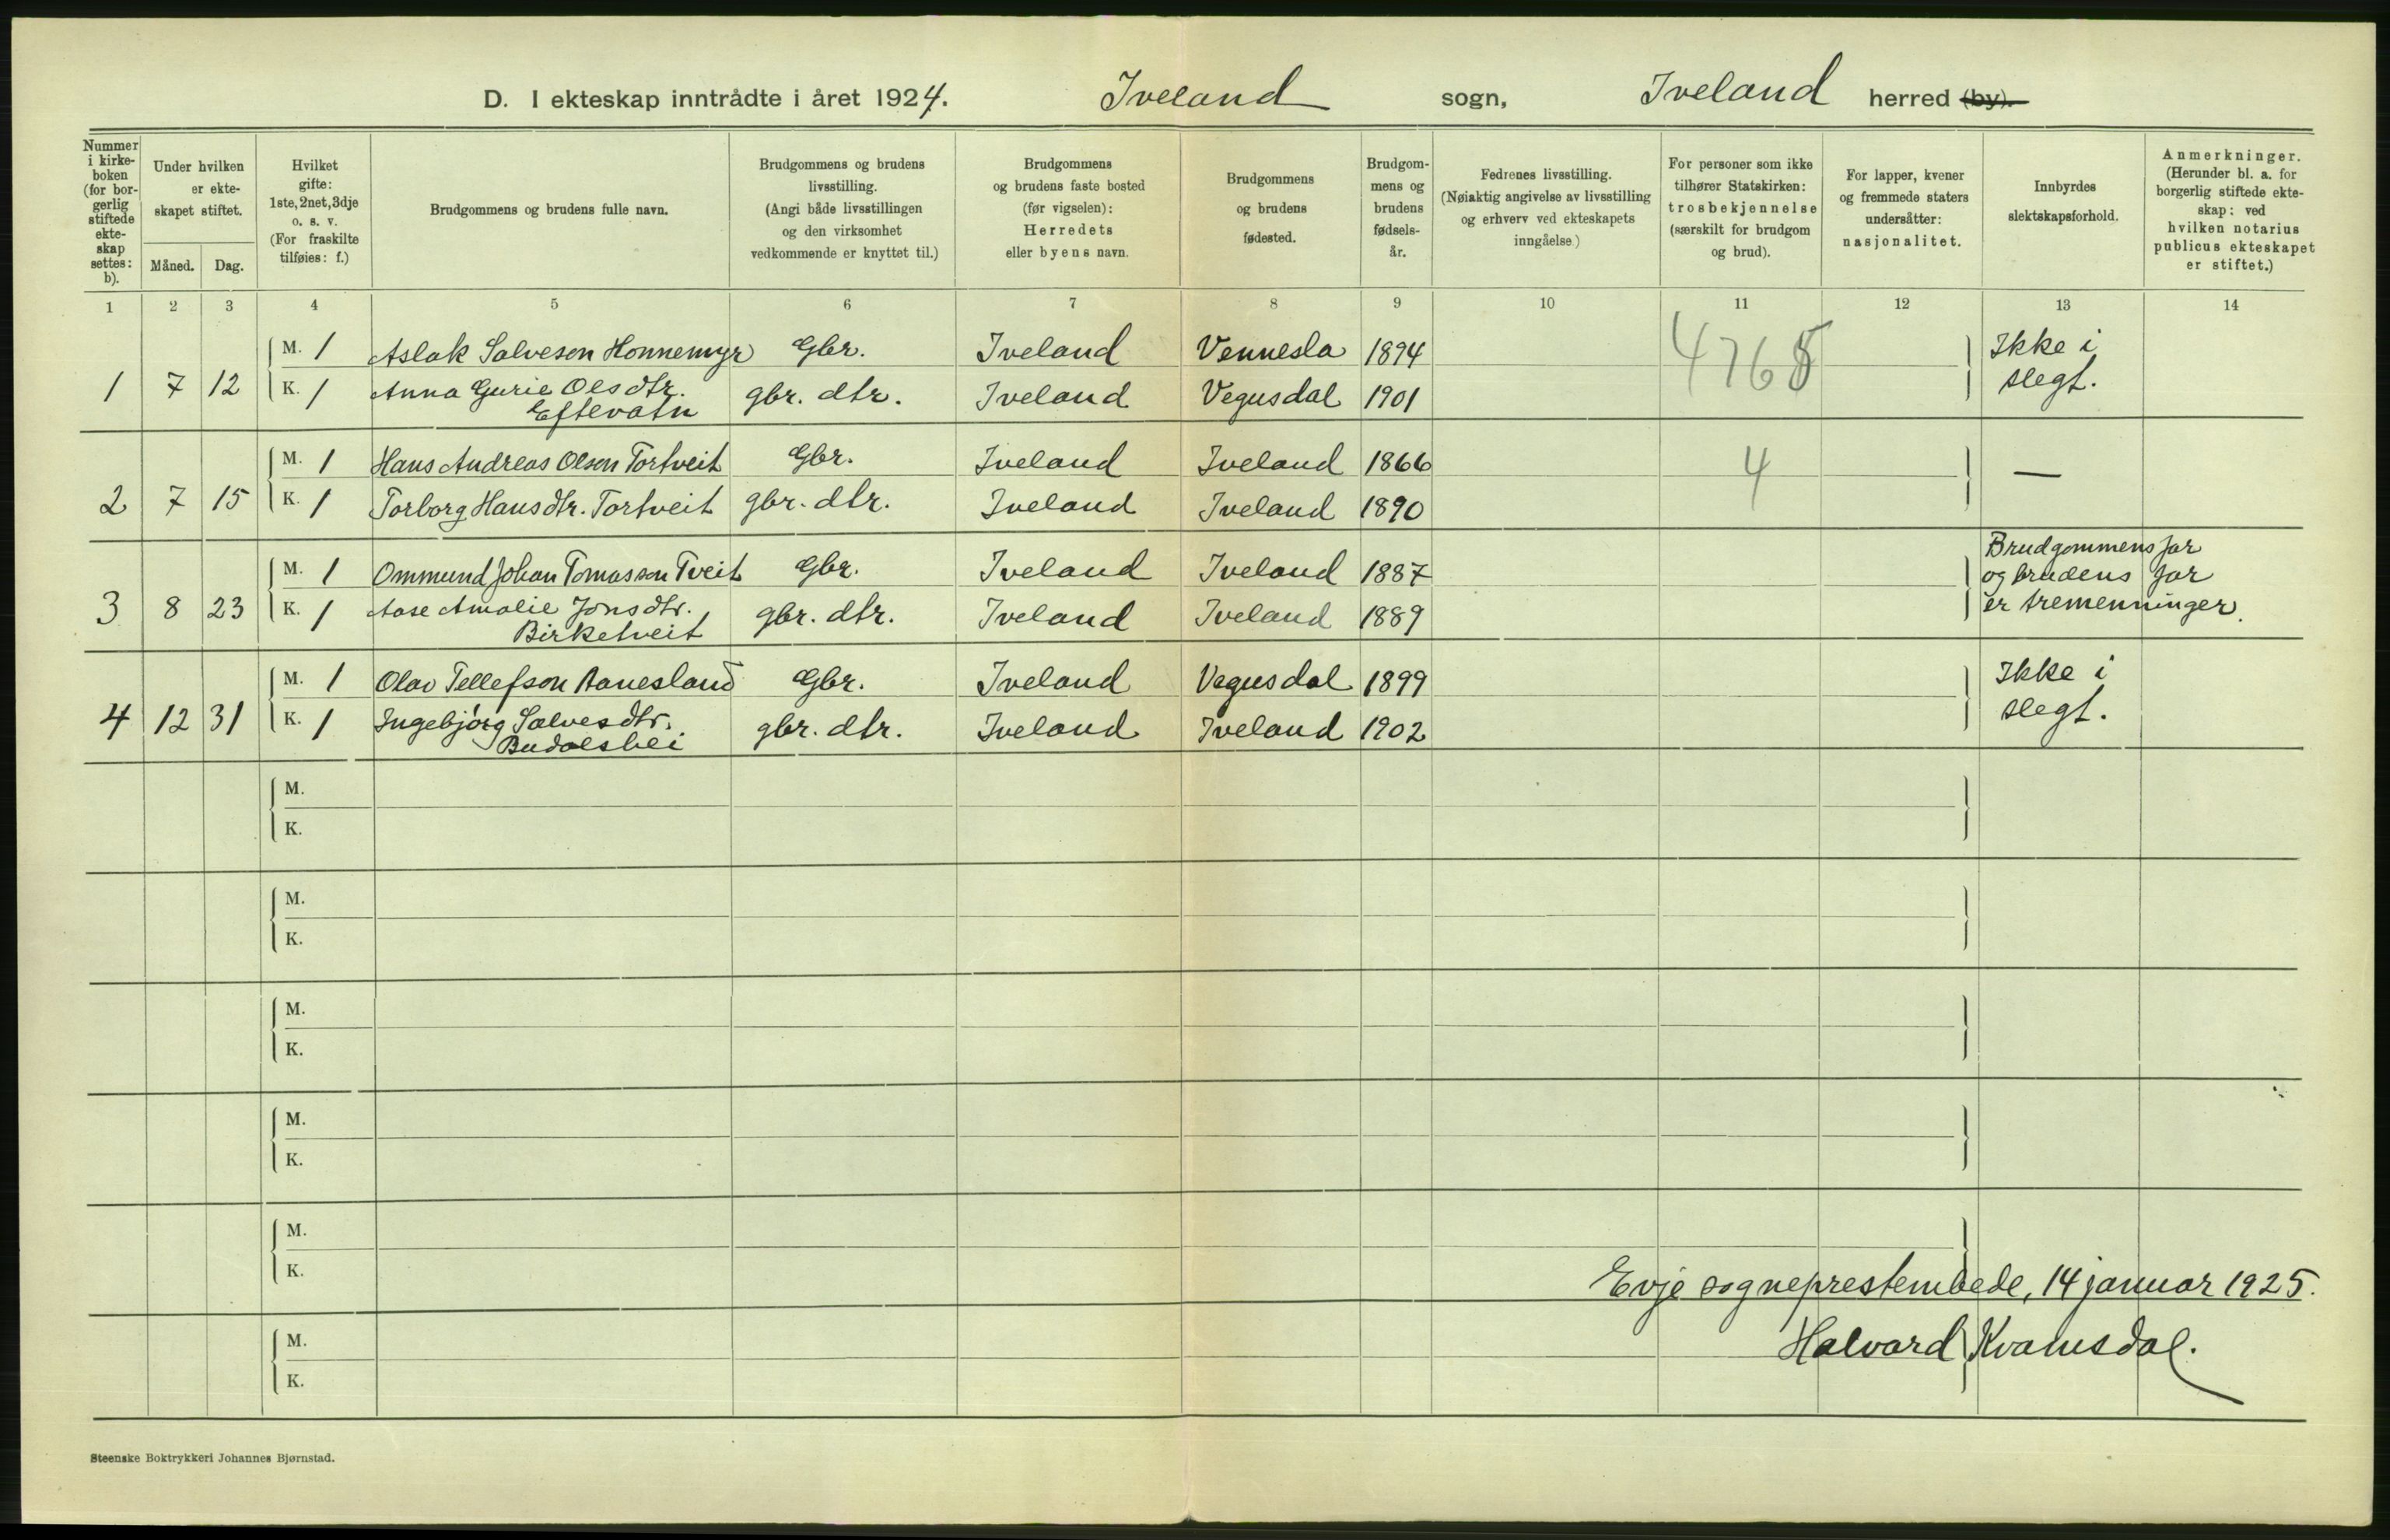 D. I ekteskap inntrådte i året 1924. Iveland sogn, Iveland herred (by).
Nummer i kirke- boken (for bor- gerlig stiftede ekte- skap settes: b).
Under hvilken er ekte- skapet stiftet.
Måned. Dag.
Hvilket gifte: 1ste, 2net, 3dje o. s. v. (For fraskilte tilføies: f.)
Brudgommens og brudens fulle navn.
Brudgommens og brudens livsstilling. (Angi både livsstillingen og den virksomhet vedkommende er knyttet til.)
Brudgommens og brudens faste bosted (før vigselen): Herredets eller byens navn.
Brudgommens og brudens fødested.
Brudgom- mens og brudens fødsels- år.
Fedrenes livsstilling. (Nøiaktig angivelse av livsstilling og erhverv ved ekteskapets inngåelse)
For personer som ikke tilhører Statskirken: trosbekjennelse (særskilt for brudgom og brud).
For lapper, kvener og fremmede staters undersåtter: nasjonalitet.
Innbyrdes slektskapsforhold.
Anmerkninger. (Herunder bl. a. for borgerlig stiftede ekte- skap: ved hvilken notarius publicus ekteskapet er stiftet.)
1 2 3 4 5 6 7 8 9 10 11 12 13 14
M. 1 Aslak Salveson Honnemyr Gbr. Iveland Vennesla 1894 Ikke i
1 7 12 K. 1 Anna Gurie Olsdtr. gbr. dtr. Iveland Vegusdal 1901 slegt.
Eftevatn
M. 1 Hans Andreas Olsen Tortveit Gbr. Iveland Iveland 1866 4 —
2 7 15 K. 1 Torborg Hansdtr. Tortveit gbr. dtr. Iveland Iveland 1890
Brudgommens far
M. 1 Ommund Johan Tomasson Tveit Gbr. Iveland Iveland 1887 og brudens far
3 8 23 K. 1 Aase Amalie Jonsdtr. gbr. dtr. Iveland Iveland 1889 er tremenninger.
Birketveit
M. 1 Olav Tellefson Aanesland Gbr. Iveland Vegusdal 1899 Ikke i
4 12 31 K. 1 Ingebjørg Salvesdtr. gbr. dtr. Iveland Iveland 1902 slegt.
M.
K.
M.
K.
M.
K.
M.
K.
M.
K.
Evje sogneprestembede, 14 januar 1925.
M.
Halvard Kvamsdal.
K.
Steenske Boktrykkeri Johannes Bjørnstad.